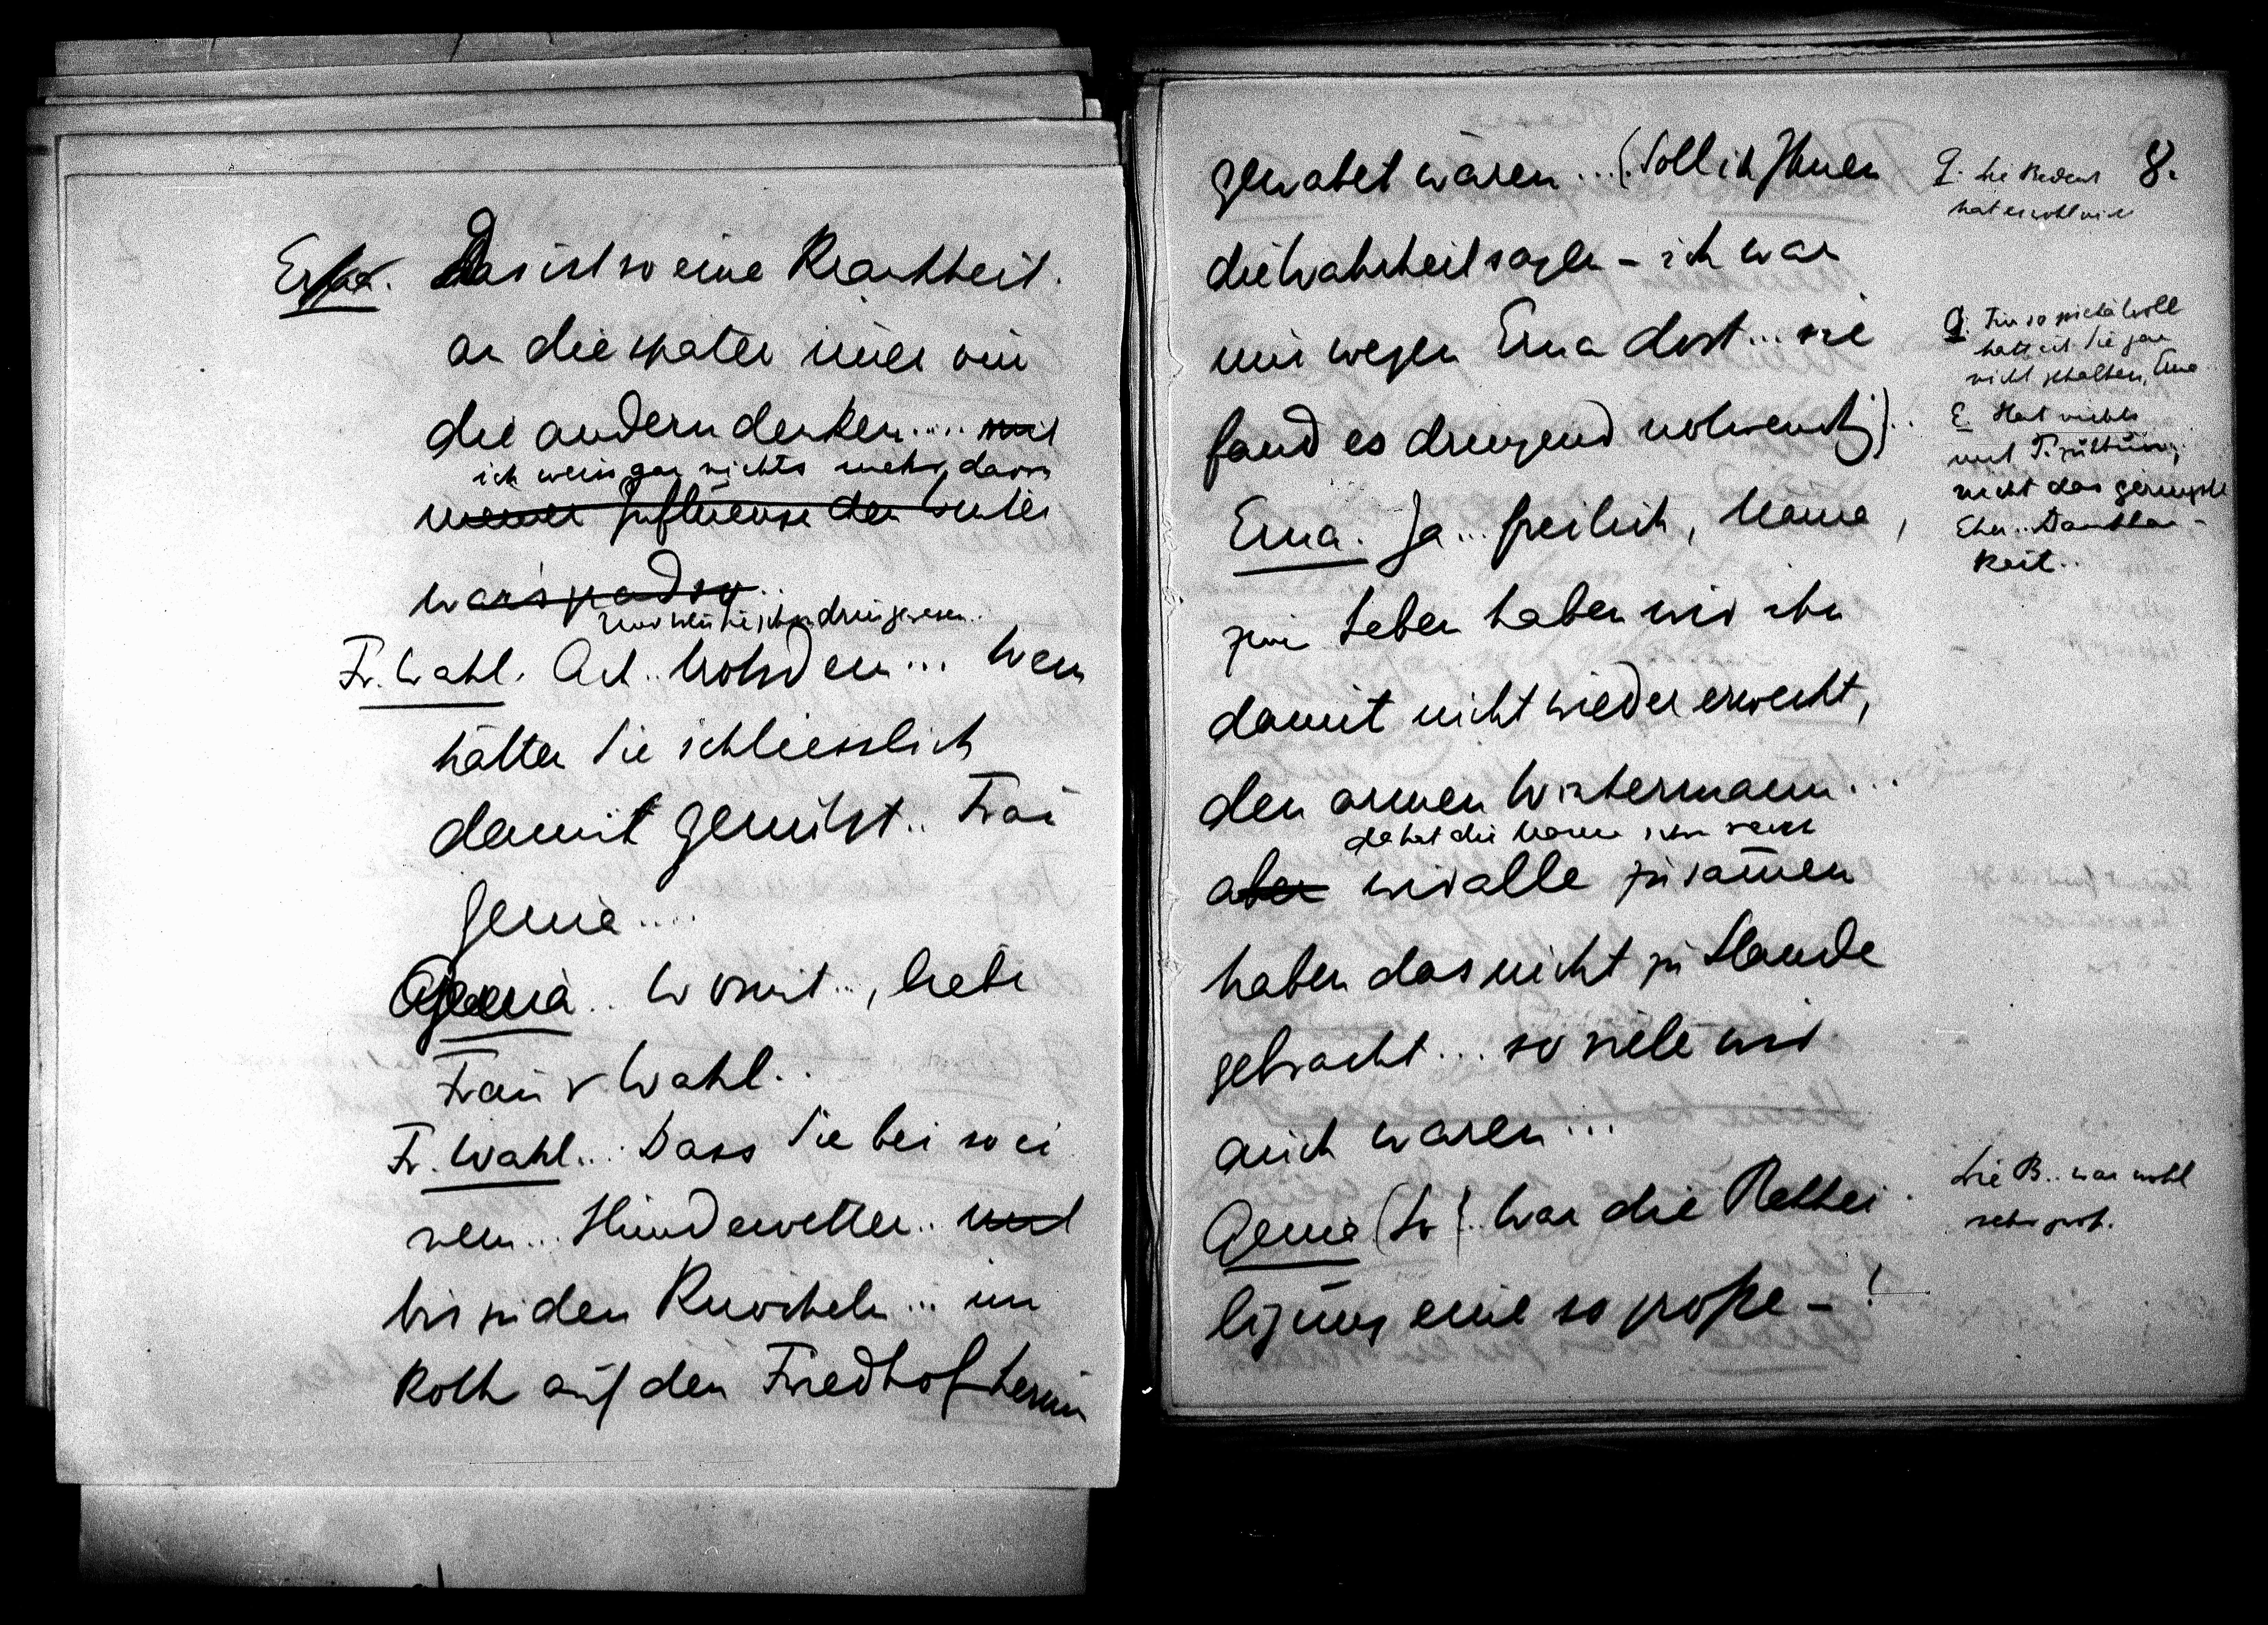 Erna. Das ist so eine Krankheit.
an die später immer nur
die andern denken....
ich weiss gar nichts mehr davon
meiner Influenza den Winter
war's grad so..
Fr. Wahl. Ach.. trotzdem... Wem
hätte Sie schliesslich
damit genützt.. Frau
Genia....
Genia.. Womit.., liebe
Frau v Wahl..
Fr. Wahl... Dass Sie bei so ei
nem... Hundewetter.. und
bis zu den Knöcheln... im
Koth auf dem Friedhof herum
gewatet wären...(Soll ich Ihnen
die Wahrheit sagen – ich war
nur wegen Erna dort... sie
fand es dringend nothwendig)..
Erna. Ja... freilich, Mama,
zum Leben haben wir ihn
damit nicht wieder erweckt,
den armen
da hat die Mama schon recht
aber wir alle zusammen
haben das nicht zu Stande
gebracht... so viele wir
auch waren...
Genia (So).. War die Bethei
ligung eine so große – !
8.
G. Die Bedeus
hat es wohl nie
G. Für so pietätvoll
hätt ich Sie gar
nicht gehalten, Erna
E Hat nichts
mit
nicht das geringste
Eher.. Dankbar-
keit..
Die B.. war wohl
sehr groß.